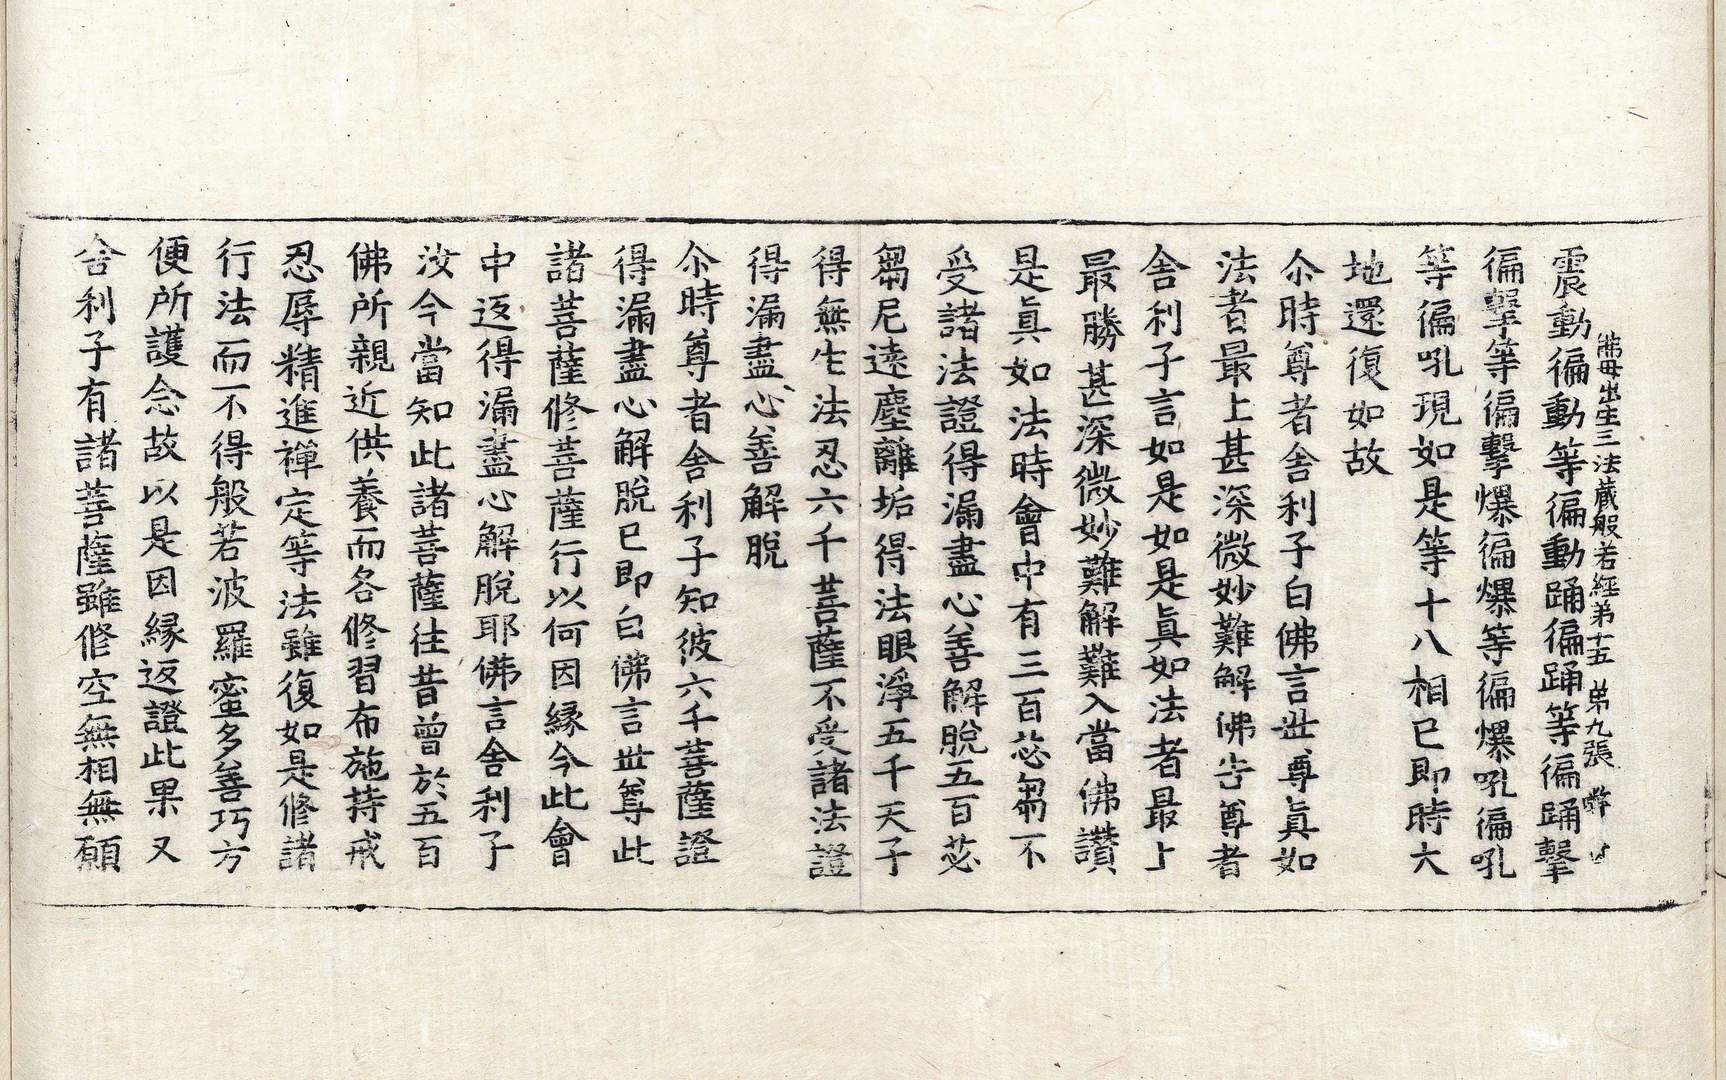 佛母出生三法藏般若經第十五　第九張　弊
震動徧動等徧動踊徧踊等徧踊擊
徧擊等徧擊爆徧爆等徧爆吼徧吼
等徧吼現如是等十八相已即時大
地還復如故
尒時尊者舍利子白佛言丗尊眞如
法者最上甚深微妙難解佛告尊者
舍利子言如是如是眞如法者最上
最勝甚深微妙難解難入當佛讃
是眞如法時會中有三百苾芻不
受諸法證得漏盡心善解脫五百苾
芻尼遠塵離垢得法眼淨五千天子
得無生法忍六千菩薩不受諸法證
得漏盡心善解脫
尒時尊者舍利子知彼六千菩薩證
得漏盡心解脫已即白佛言丗尊此
諸菩薩修菩薩行以何因緣今此會
中返得漏盡心解脫耶佛言舍利子
汝今當知此諸菩薩往昔曾於五百
佛所親近供養而各修習布施持戒
忍辱精進禪定等法雖復如是修諸
行法而不得般若波羅蜜多善巧方
便所護念故以是因緣返證此果又
舍利子有諸菩薩雖修空無相無願